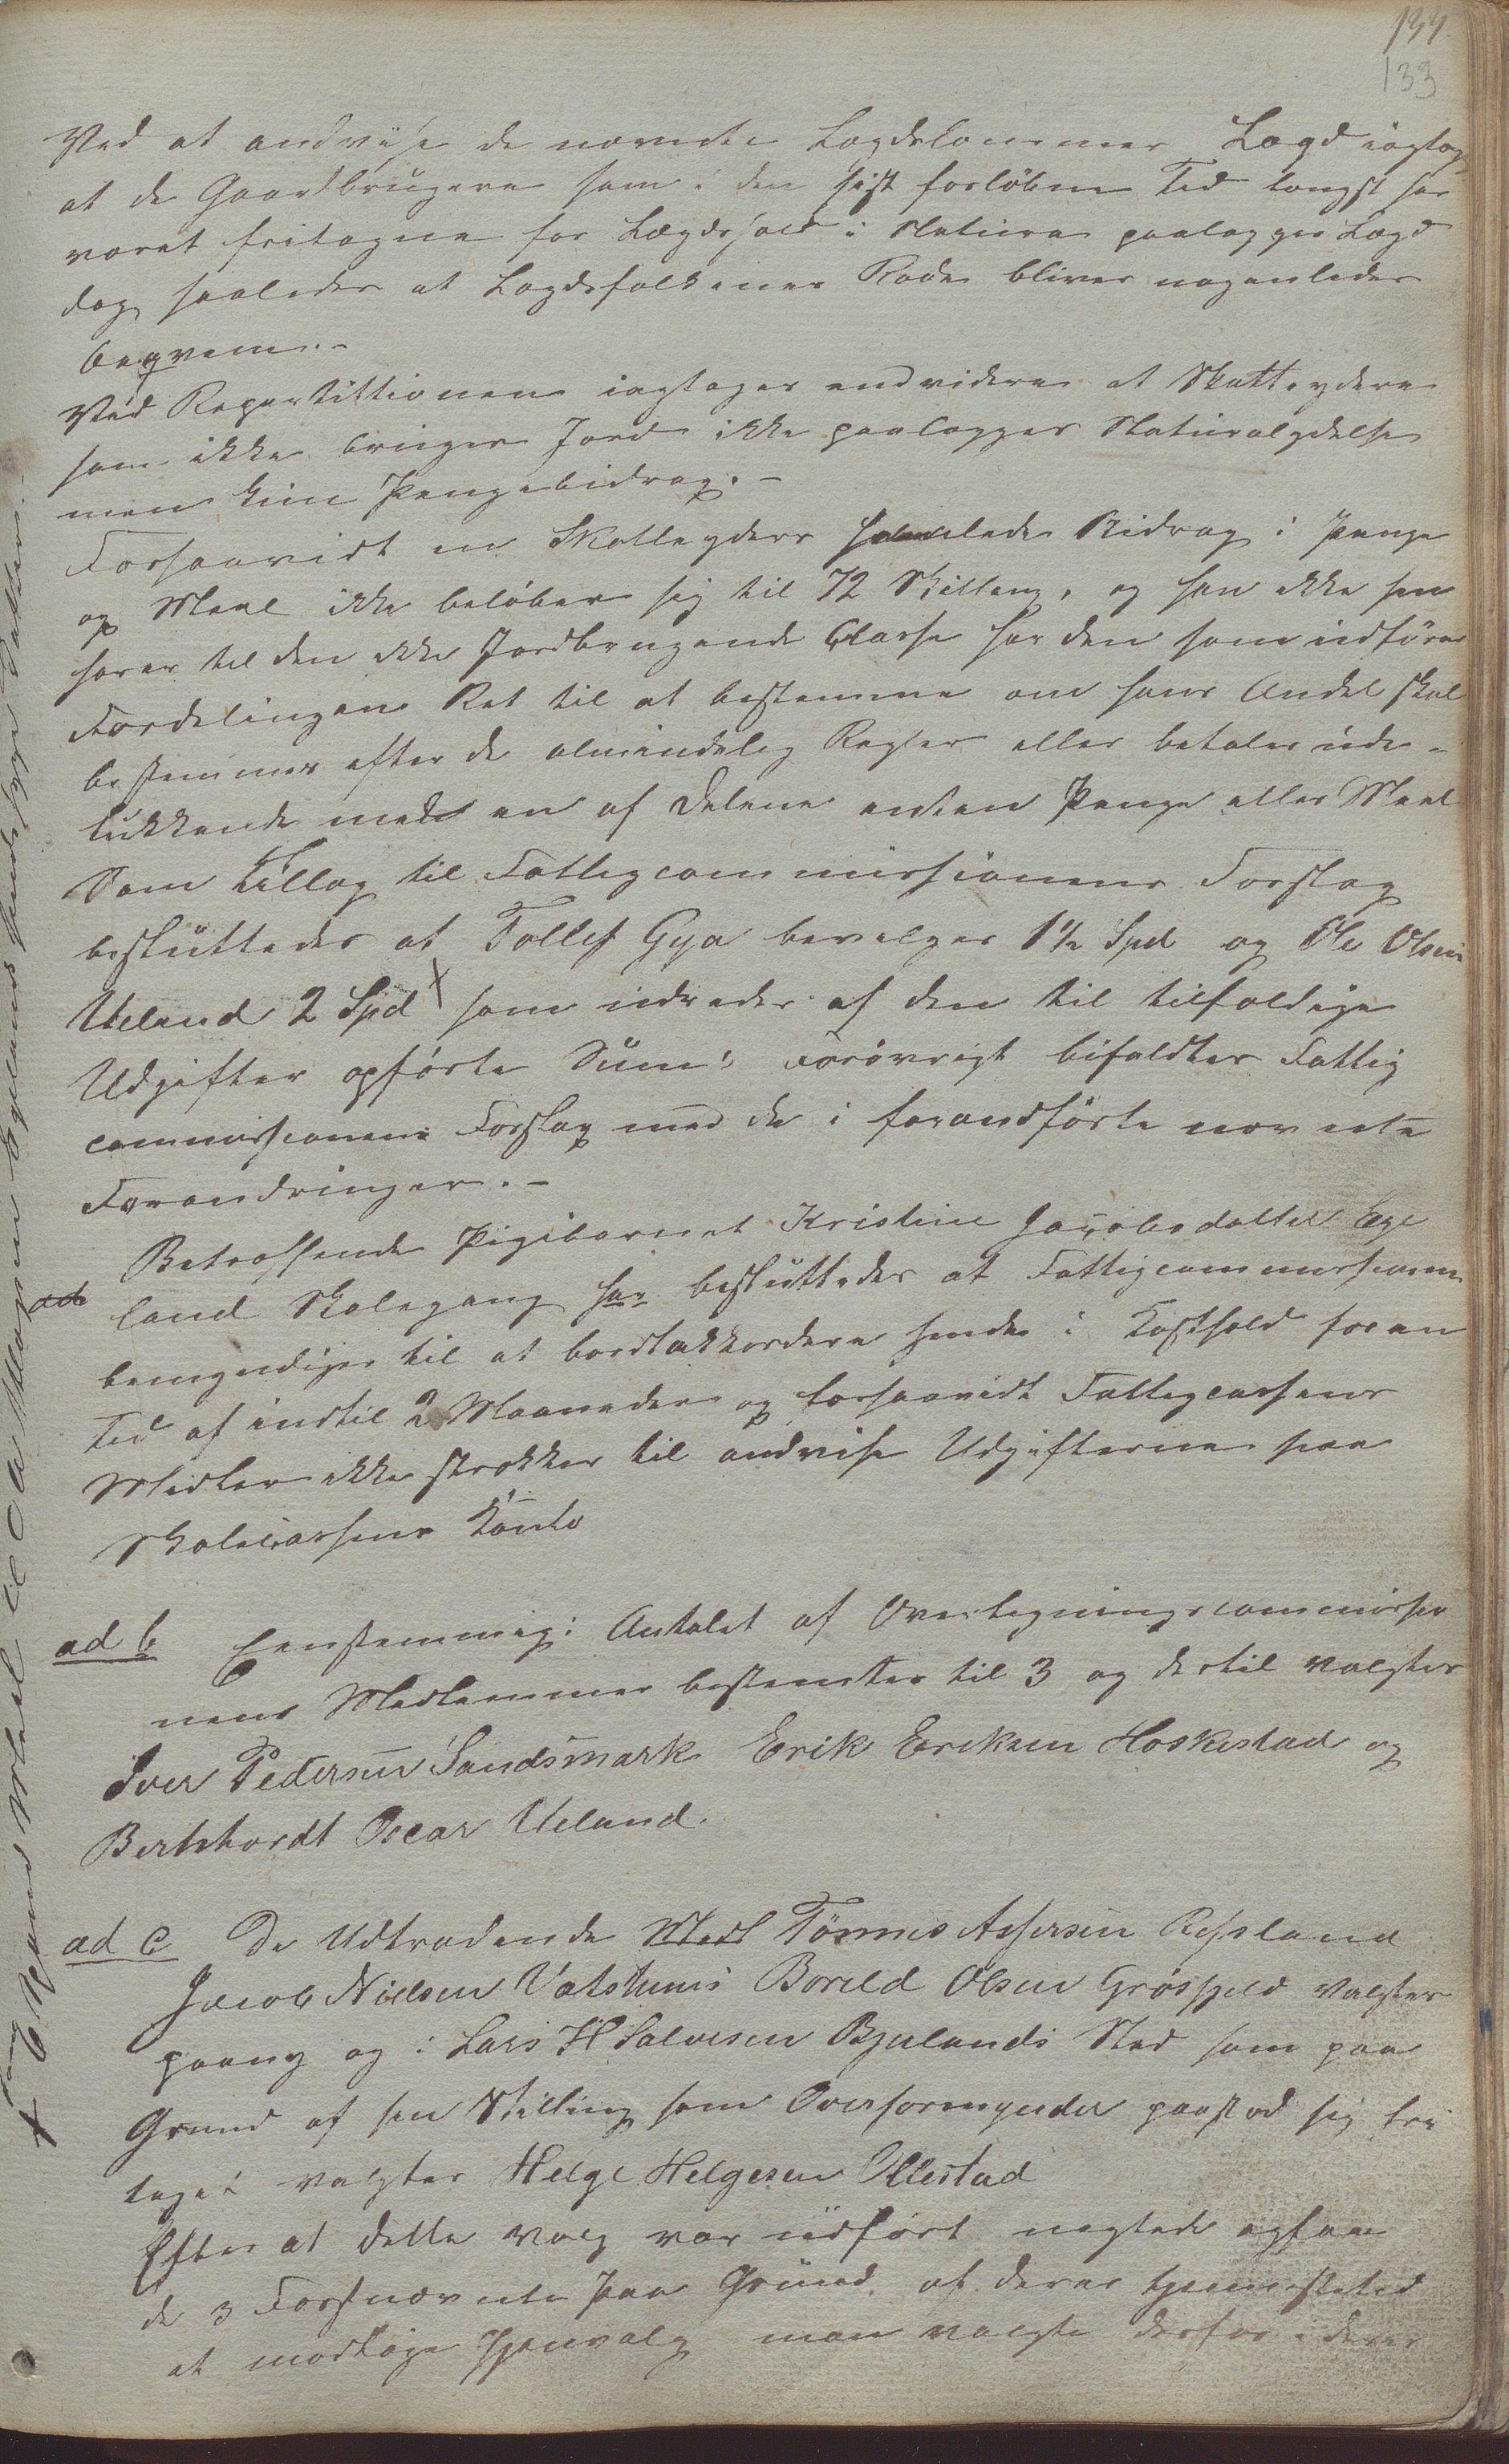 133
Ved at andvise de nævnte Lægdslemmer Lægd iagtag
at de Gaardbrugere som i den sist forløbne Tid længst har
været fritagne for Lægdshold i Natura paalægges Lægd
dog saaledes at Lægdsfolkenes Rode bliver nogenledes
beqvem.-
Ved Repartittionen iagtages endvidere at Skatteydere
som ikke bruger Jord ikke paalægges Naturalydelse
men kun Pengebidrag.-
Forsaavidt en Skatteyders samlede Bidrag i Penge
og Meel ikke beløber sig til 72 Skilling, og han ikke hen
hører til den ikke Jordbrugende Classe har den som udfører
Fordelingen Ret til at bestemme om hans Andel skal
bestemmes efter de almindelig Regler eller betales ude-
lukkende med en af Delene enten Penge eller Meel
Som Tillæg til Fattigcommissionens Forslag
besluttedes at Tollef Gya bevilges 1½ Spd og Ole Olsen
Ueland 2 Spd x som udredes af den til tilfældige
Udgifter opførte Sum. Forøvrigt bifaldtes Fattig
commissionens Forslag med de i foranførte nævnte
Forandringer.-
Betræffende Pigebarnet Kristine Jacobsdatter Ege
land Skolegang har besluttedes at Fattigcommissionen
bemyndiges til at bortakkordere hende i Kosthold for en
Tid af indtil 2 Maaneder og forsaavidt Fattigcassens
Midler ikke strækker til andvise Udgifterne paa
Skolecassens Konto
ad b Eenstemmig: Antalet af Overligningscommissio
nens Medlemmer bestemtes til 3 og dertil valgtes
Iver Pedersen Sandsmark Erik Eriksen Hoskestad og
Berhhardt Oscar Ueland.
ad c De Udtrædende Medl Tönnes Assersen Refsland
Jacob Nielsen Vatshuus Bořeld Olsen Grøsfjeld valgtes
paany og i Lars H Salvesen Bjulands Sted som paa
Grund af sin Stilling som Overformynder paastod sig fri
taget valgtes Helge Helgesen Ollestad
Efter at dette valg var udført nægtede ogsaa
de 3 Førstnævnte paa Grund af deres tjenestetid
at modtage Gjenvalg man valgte derfor i deres